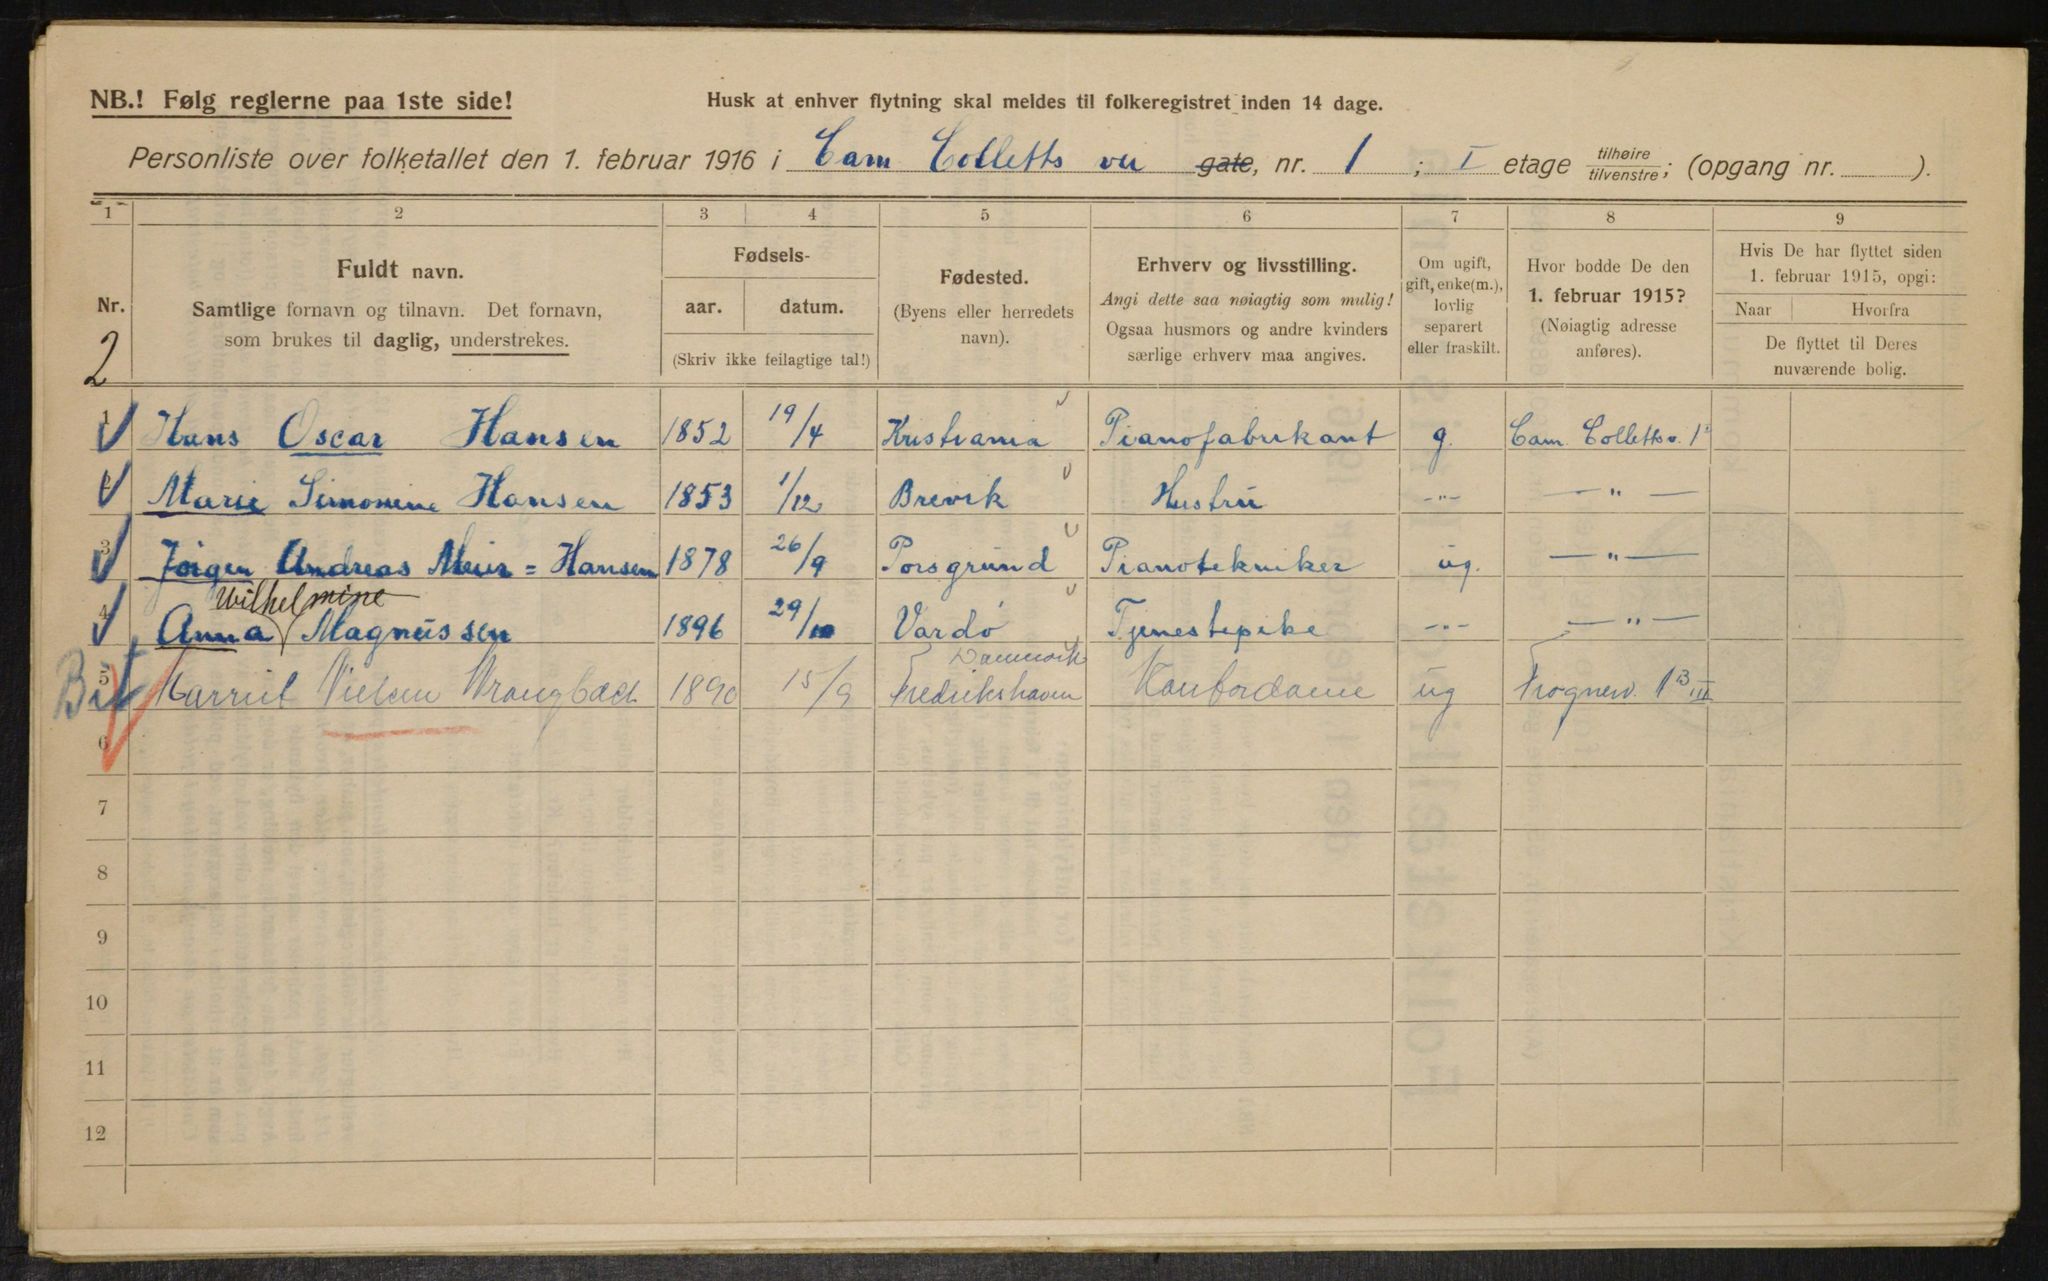 NB.! Følg reglerne paa 1ste side!
Husk at enhver flytning skal meldes til folkeregistret inden 14 dage.
Personliste over folketallet den 1. februar 1916 i Cam Colletts vei gate, nr. 1 ; I etage tilhøire/tilvenstre; (opgang nr. ).
1 2 3 4 5 6 7 8 9
Nr.
2
Fuldt navn.
Samtlige fornavn og tilnavn. Det fornavn,
som brukes til daglig, understrekes.
Fødsels-
aar. datum.
(Skriv ikke feilagtige tal!)
Fødested.
(Byens eller herredets
navn).
Erhverv og livsstilling.
Angi dette saa nøiagtig som mulig!
Ogsaa husmors og andre kvinders
særlige erhverv maa angives.
Om ugift,
gift, enke(m.),
lovlig
separert
eller fraskilt.
Hvor bodde De den
1. februar 1915?
(Nøiagtig adresse
anføres).
Hvis De har flyttet siden
1. februar 1915, opgi:
Naar Hvorfra
De flyttet til Deres
nuværende bolig.
1 Hans Oscar Hansen 1852 19/4 Kristiania Pianofabrikant g. Cam. Colletts v. 1
2 Marie Simonine Hansen 1853 1/12 Brevik Hustru -"- -"-
3 Jörgen Andreas Meier = Hansen 1878 26/9 Porsgrund Pianotekniker ug. -"-
Wilhelmine
4 Anna Magnussen 1896 29/10 Vardö Tjenestepike -"- -"-
Danmark
5 Harriet Nielsen Wrangbæck 1890 15/9 Fredrikshavn Kontordame ug Frognerv. 1B III
6
7
8
9
10
11
12